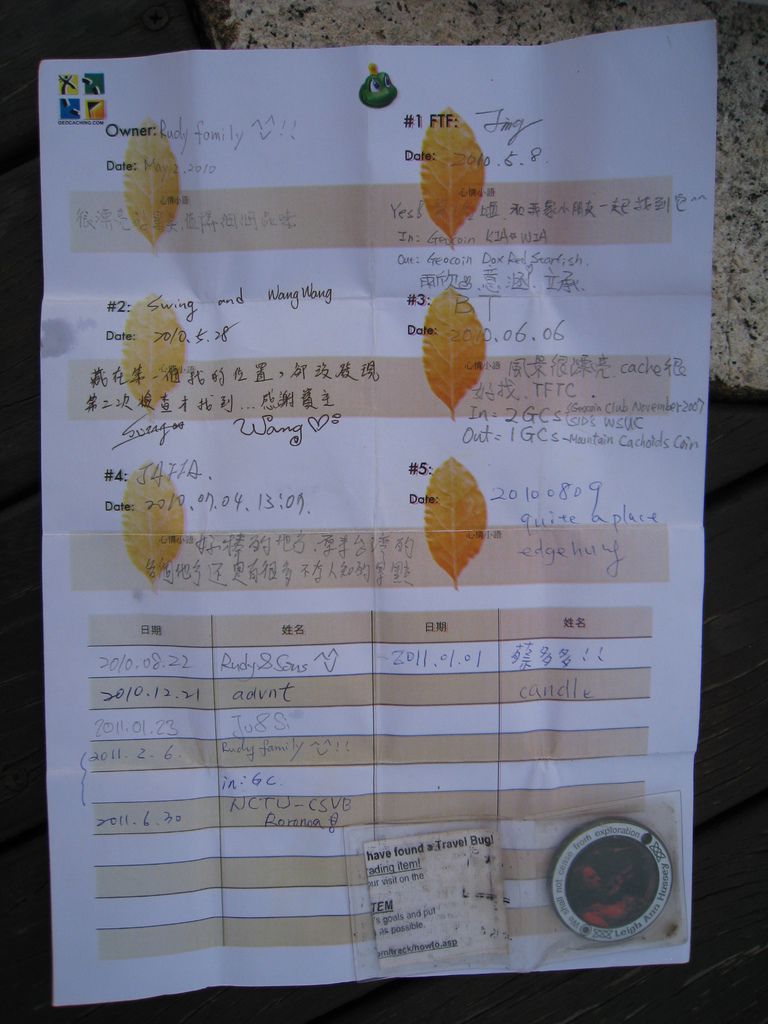 GEOCACHING.COM
Owner: Rudy family ^^!!
Date: May 2, 2010
心情小語
很漂亮
#1 FTF: Jing
Date: 2010.5.8.
心情小語
Yes! 和我家小朋友一起找到它^^
In: Geocoin KIA WIA
Out: Geocoin Dox Red Starfish.
雨欣 意涵. 立承.
#2: Swing and WangWang
Date: 2010.5.28
心情小語
藏在第一個找的位置,卻沒發現
第二次檢查才找到...感謝寶主
Swing Wang♡
#3: BT
Date: 2010.06.06
心情小語
風景很漂亮 cache很
好找. TFTC.
In = 2GCs (Geocoin Club November 2007
WSUC
Out = 1GCs - Mountain Cachoids Coin
#4: JAFIA.
Date: 2010.07.04. 13:07.
心情小語
好棒的地方.
各個地方還有很多不為人知的景點
#5:
Date: 20100809
心情小語
quite a place
edgehung
日期 姓名 日期 姓名
2010.08.22 Rudy & Sons ^^ 2011.01.01 蔡多多!!
2010.12.21 advnt candle
2011.01.23 Ju & Si
2011. 2. 6. Rudy family ^^!!
in: GC.
NCTU-CSVB
2011. 6. 30 Roronoa
have found a Travel Bug!
rading item!
our visit on the
TEM
's goals and put
as possible.
om/track/howto.asp
We shall not cease from exploration
Leigh Ann Hussey